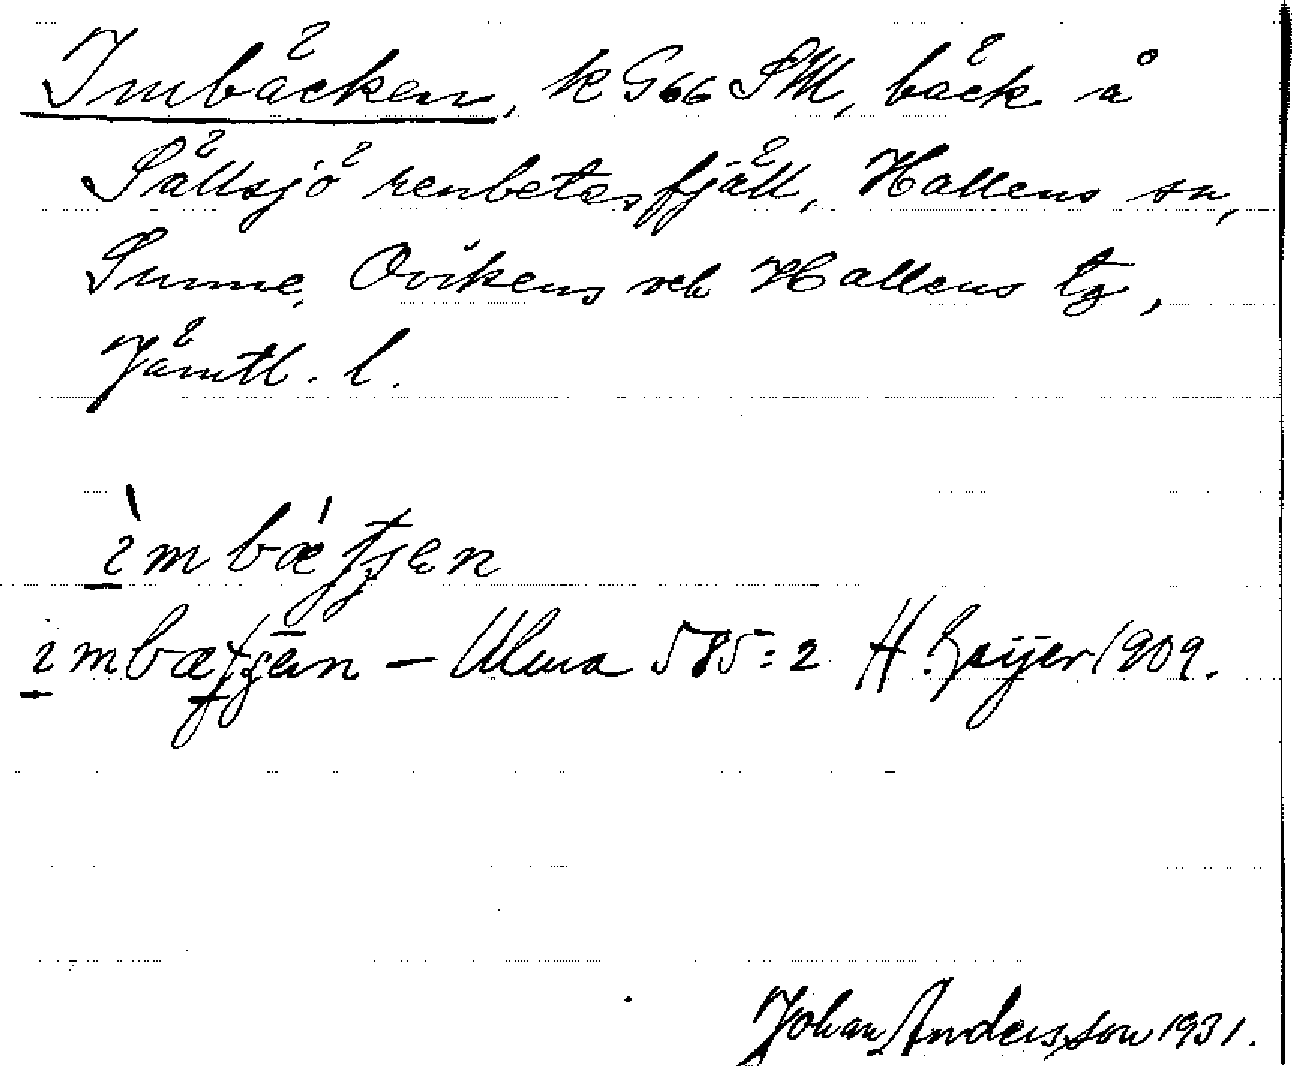 Imbäcken, k G66 SM, bäck å
Sällsjö renbetesfjäll, Hallens sn,
Sunne, Ovikens och Hallens tg,
Jämtl. l.
ìmbǽʄʂen
imbæʄʂēn – Ulma 585:2 H. Geijer 1909.
Johan Andersson 1931.